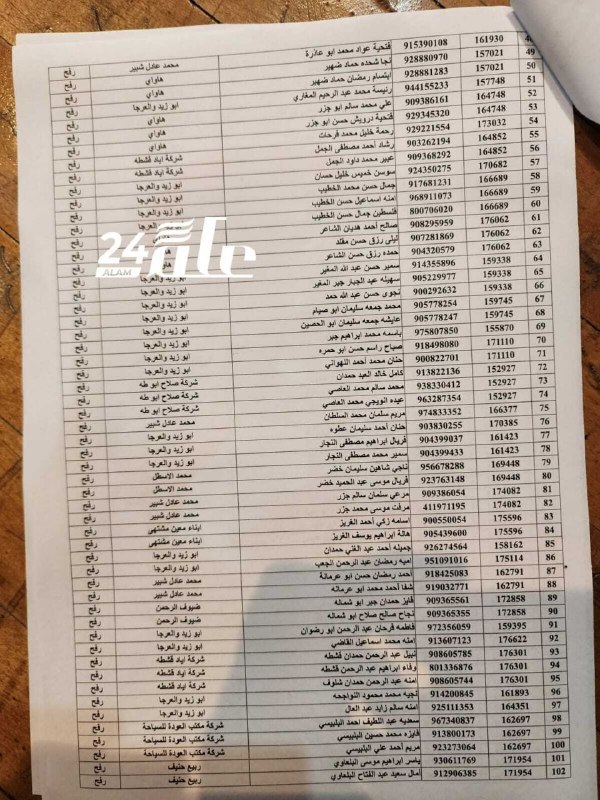 48 161930 915390108 فتحية عواد محمد ابو عاذرة محمد عادل شبير رفح
49 157021 928880970 نجا شحده حماد ضهير هاواي رفح
50 157021 928881283 ابتسام رمضان حماد ضهير هاواي رفح
51 157748 944155233 رئيسة محمد عبد الرحيم المغاري ابو زيد والعرجا رفح
52 164748 909386161 علي محمد سالم ابو جزر هاواي رفح
53 164748 929345320 فتحية درويش حسن ابو جزر هاواي رفح
54 173032 929221554 رحمة خليل محمد فرحات هاواي رفح
55 164852 903262194 رشاد أحمد مصطفى الجمل شركة اياد قشطه رفح
56 164852 909368292 عبير محمد داود الجمل شركة اياد قشطه رفح
57 170682 924350275 سوسن خميس خليل حسان ابو زيد والعرجا رفح
58 166689 917681231 جمال حسن محمد الخطيب ابو زيد والعرجا رفح
59 166689 968911073 امنه اسماعيل حسن الخطيب ابو زيد والعرجا رفح
60 166689 800706020 فلسطين جمال حسن الخطيب ابو زيد والعرجا رفح
61 176062 908295959 صالح أحمد هديان الشاعر هاواي رفح
62 176062 907281869 ليلى رزق حسن مقلد
63 176062 904320579 حمده رزق حسن الشاعر
24 عالم
ALAM
64 159338 914355896 سمير حسن عبد الله المغير ابو زيد والعرجا رفح
65 159338 905229977 سهيله عبد الجبار جبر المغير ابو زيد والعرجا رفح
66 159338 900292632 نجوى حسن عبد الله حمد ابو زيد والعرجا رفح
67 159745 905778254 محمد جمعه سليمان ابو صيام ابو زيد والعرجا رفح
68 159745 905778247 عايشه جمعه سليمان ابو الحصين ابو زيد والعرجا رفح
69 155870 975807850 باسمه محمد ابراهيم جبر ابو زيد والعرجا رفح
70 171110 918498080 صباح راسم حسن ابو حمره ابو زيد والعرجا رفح
71 171110 900822701 حنان محمد أحمد اللهواني ابو زيد والعرجا رفح
72 152927 913822136 كامل خالد العبد حمدان شركة صلاح ابو طه رفح
73 152927 938330412 محمد سالم محمد العاصي شركة صلاح ابو طه رفح
74 152927 963287354 عيده النويجي محمد العاصي شركة صلاح ابو طه رفح
75 166377 974833352 مريم سلمان محمد السلطان محمد عادل شبير رفح
76 170385 903830255 حنان أحمد سليمان عطوه ابو زيد والعرجا رفح
77 161423 904399037 فريال ابراهيم مصطفى النجار ابو زيد والعرجا رفح
78 161423 904399433 سمير محمد مصطفى النجار ابو زيد والعرجا رفح
79 169448 956678288 ناجي شاهين سليمان خضر محمد الاسطل رفح
80 169448 923763148 فريال موسى عبد الحميد خضر محمد الاسطل رفح
81 174082 909386054 مرعي سلمان سالم جزر محمد عادل شبير رفح
82 174082 411971195 مرفت موسى محمد جزر محمد عادل شبير رفح
83 175596 900550054 اسامه زكي أحمد الغريز ابناء معين مشتهى رفح
84 175596 905439600 هالة ابراهيم يوسف الغريز ابناء معين مشتهى رفح
85 158162 926274564 جميله أحمد عبد الغني حمدان ابو زيد والعرجا رفح
86 175114 951091016 اميه رمضان عبد الرحمن الجعب ابو زيد والعرجا رفح
87 162791 918425083 أحمد حسن حسان ابو عرمانة محمد عادل شبير رفح
88 162791 919032771 شفا أحمد محمد ابو عرمانه محمد عادل شبير رفح
89 172858 909365561 فايز حمدان جبر ابو شماله ضيوف الرحمن رفح
90 172858 909365355 نجاح صالح صلاح ابو شماله ضيوف الرحمن رفح
91 159395 972356059 فاطمه فرحان عبد الرحمن ابو رضوان ابو زيد والعرجا رفح
92 176622 913607123 امنه محمد اسماعيل القاضي ابو زيد والعرجا رفح
93 176301 908605785 نبيل عبد الرحمن حمدان قشطه شركة اياد قشطه رفح
94 176301 801336876 وفاء ابراهيم عبد الرحمن قشطه شركة اياد قشطه رفح
95 176301 908605744 امنه عبد الرحمن حمدان شلوف شركة اياد قشطه رفح
96 161893 914200845 نجيه محمد محمود النواجحه ابو زيد والعرجا رفح
97 164351 925111353 امنه سالم زايد عبد العال ابو زيد والعرجا رفح
98 162697 967340837 سعديه عبد اللطيف احمد البلبيسي شركة مكتب العودة للسياحة رفح
99 162697 913800173 فايزه محمد حسين البلبيسي شركة مكتب العودة للسياحة رفح
100 162697 923273064 مريم أحمد علي البلبيسي شركة مكتب العودة للسياحة رفح
101 171954 930611769 ياسر ابراهيم موسى البلعاوي ربيع حنيف رفح
102 171954 912906385 امال سعيد عبد الفتاح البلعاوي ربيع حنيف رفح